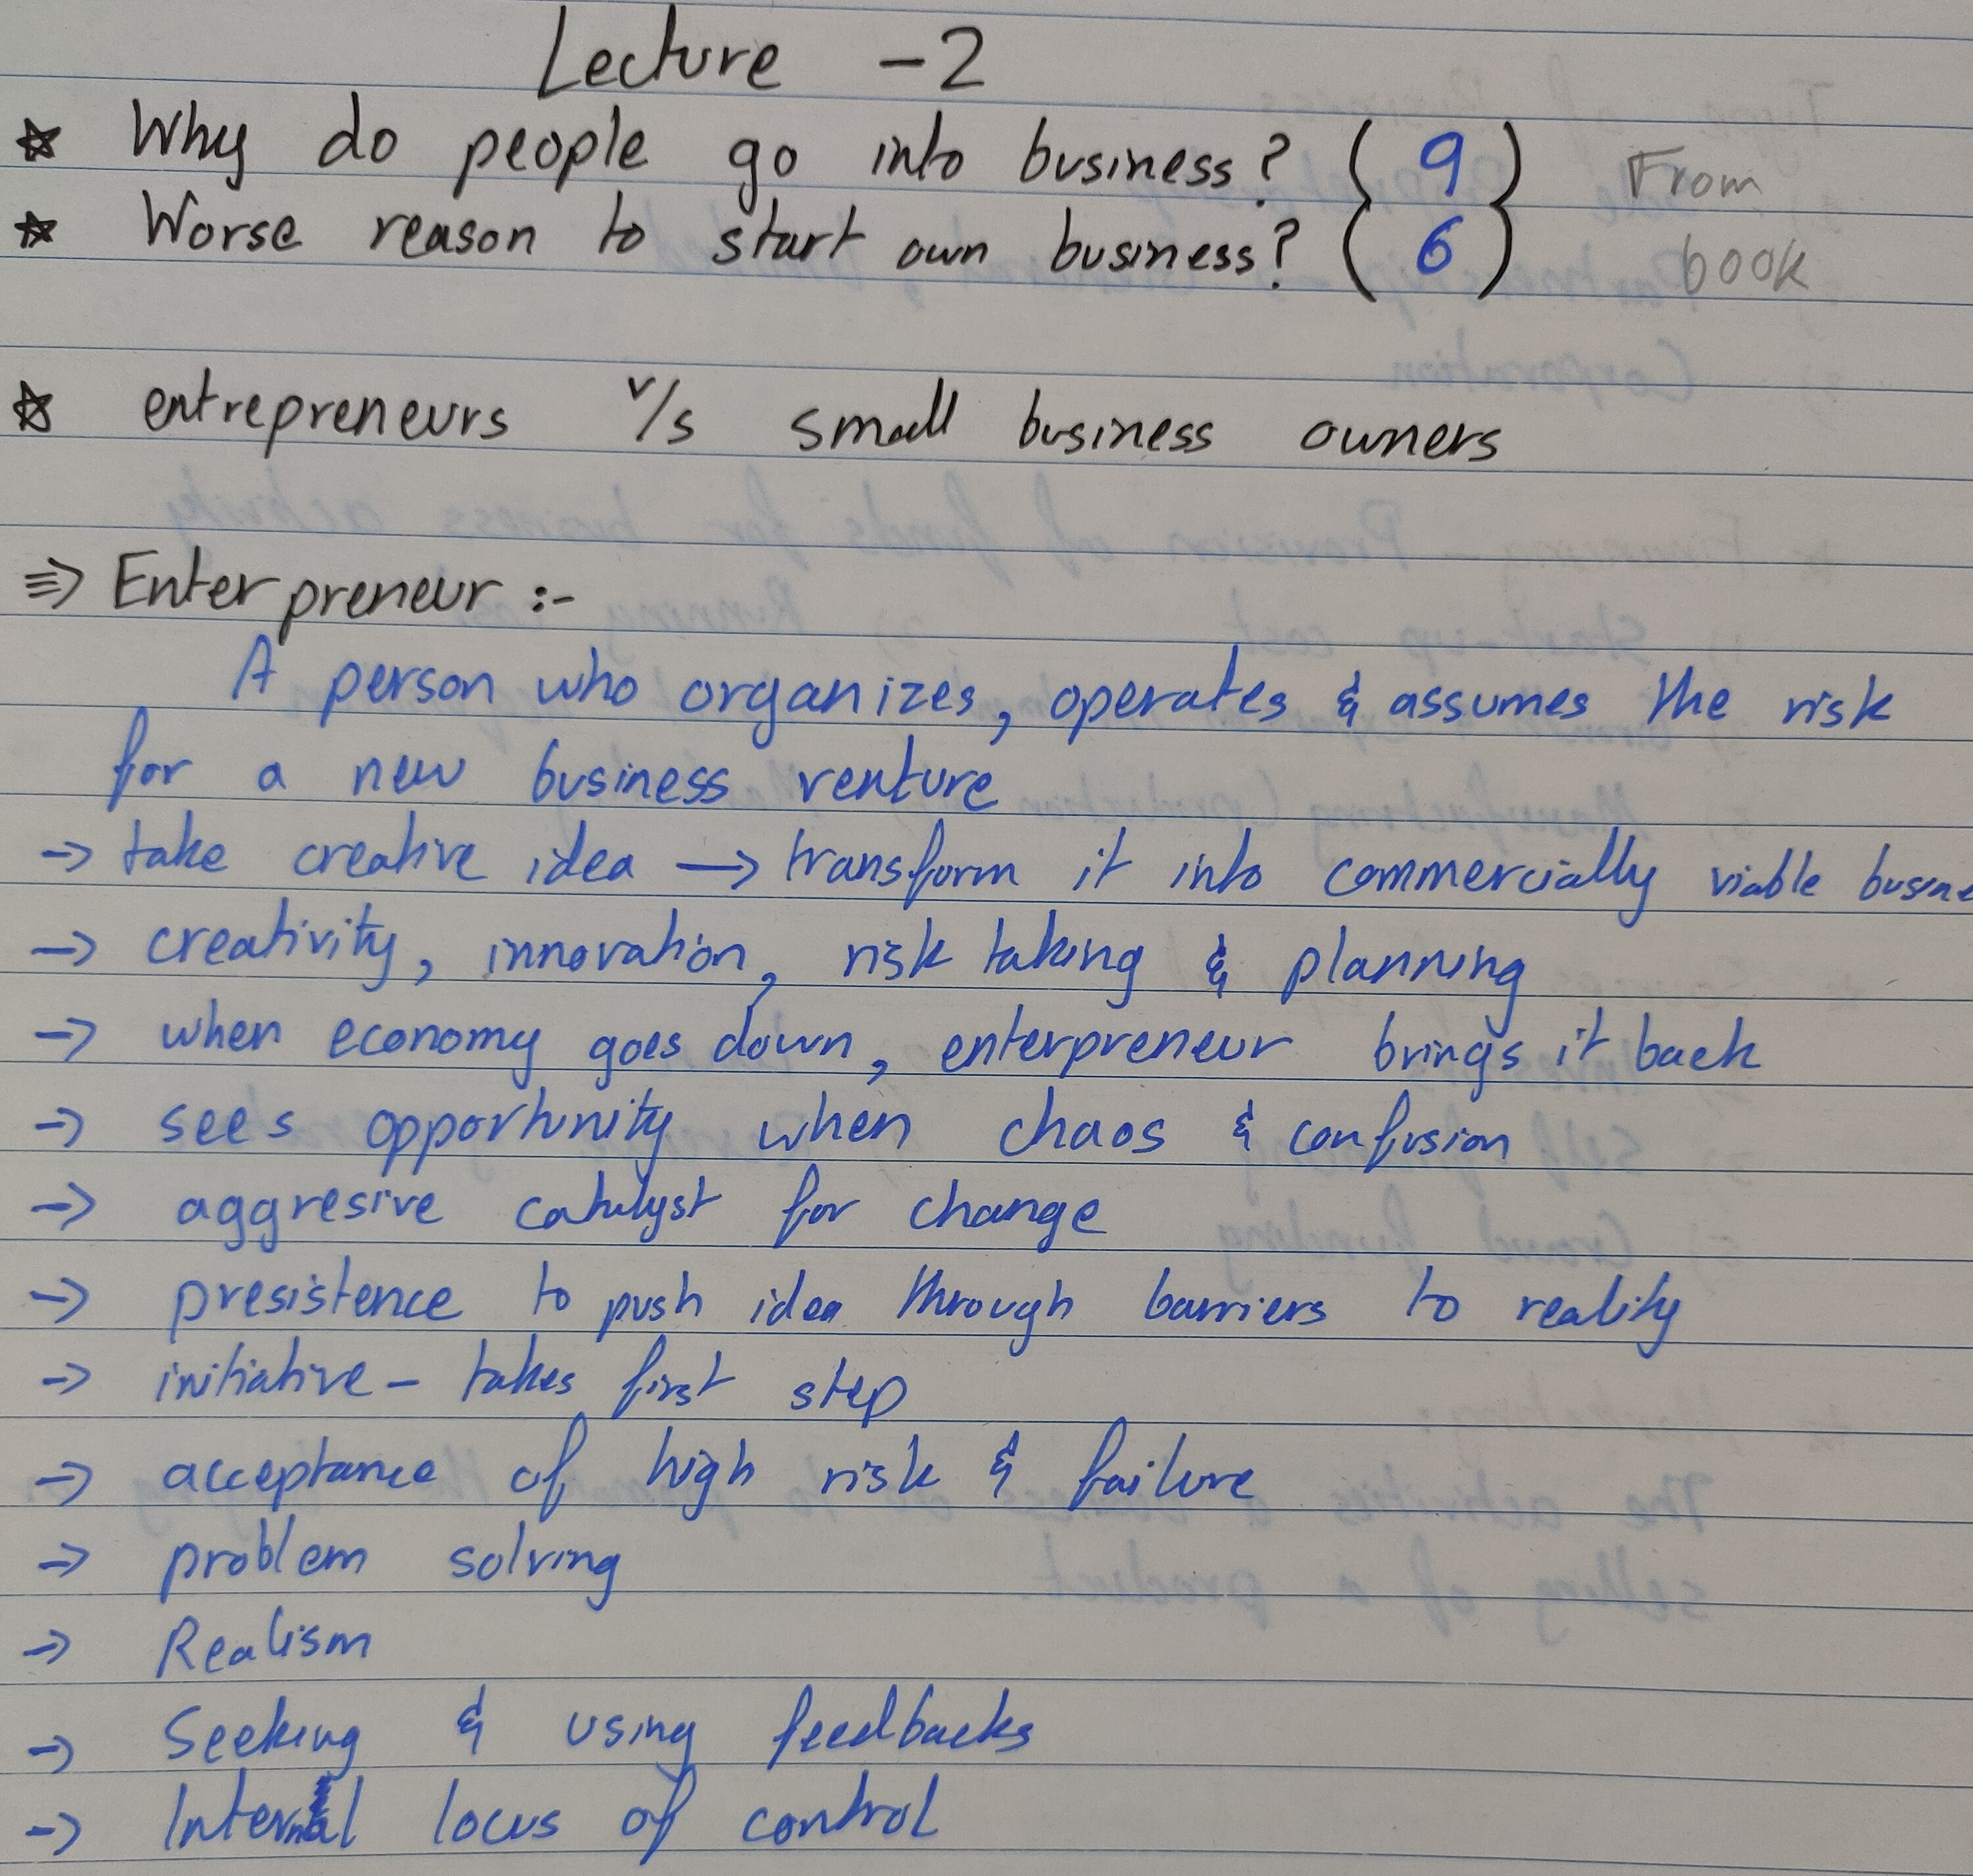 Lecture - 2
☆ Why do people go into business? { 9 } From
☆ Worse reason to start own business? { 6 } book
☆ entrepreneurs v/s small business owners
⇛ Enterpreneur :-
A person who organizes, operates & assumes the risk
for a new business venture
→ take creative idea → transform it into commercially viable busine
→ creativity, innovation, risk taking & planning
→ when economy goes down, enterpreneur brings it back
→ sees opportunity when chaos & confusion
→ aggresive catalyst for change
→ presistence to push idea through barriers to reality
→ initiative - takes first step
→ acceptance of high risk & failure
→ problem solving
→ Realism
→ Seeking & using feedbacks
→ Internal locus of control